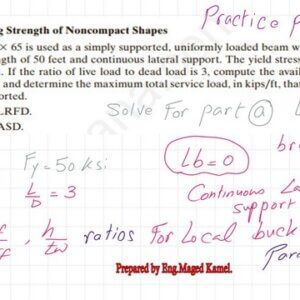 Practice P
g Strength of Noncompact Shapes
× 65 is used as a simply supported, uniformly loaded beam w
gth of 50 feet and continuous lateral support. The yield stress
. If the ratio of live load to dead load is 3, compute the avail
and determine the maximum total service load, in kips/ft, that
ported.
LRFD.
Solve For part a
ASD.
Fy=50 ksi
Lb=0
L/D = 3
Continuous La
support
h/tw ratios For Local buck
Prepared by Eng.Maged Kamel.